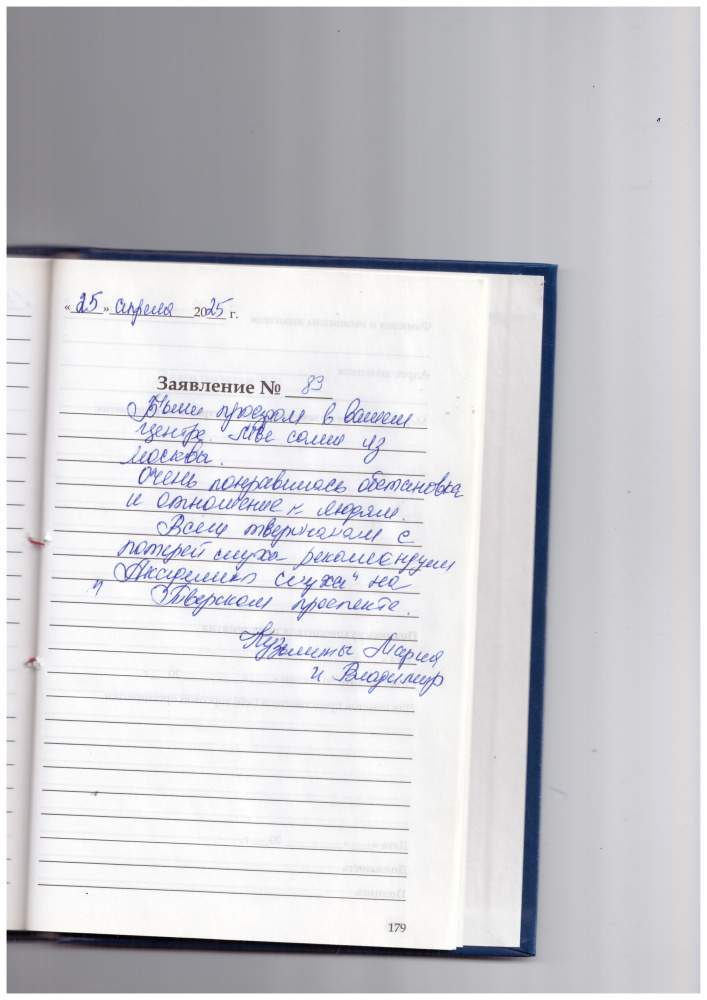 «25» апреля 2025 г.
Заявление № 89
Были проездом в вашем
центре. Мы сами из
Москвы.
Очень понравилась обстановка
и отношение к людям.
Всем тверичанам с
потерей слуха рекомендуем
"Академия слуха" на
Тверском проспекте.
Мария
и Владимир
179